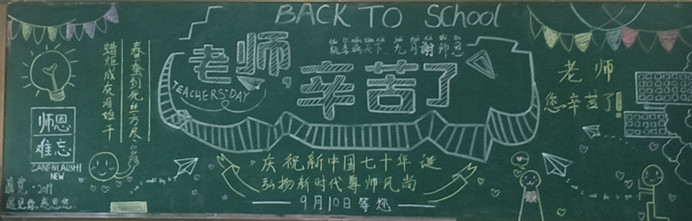 BACK TO SchooL
春蚕到死丝方尽
蜡炬成灰泪始干
桃李满天下 九月谢师恩
老师,
TEACHERS'DAY
辛苦了
老师
您辛苦了!
师恩
难忘
NEW
庆祝新中国七十年华诞
弘扬新时代尊师风尚
9月10日等您
2019